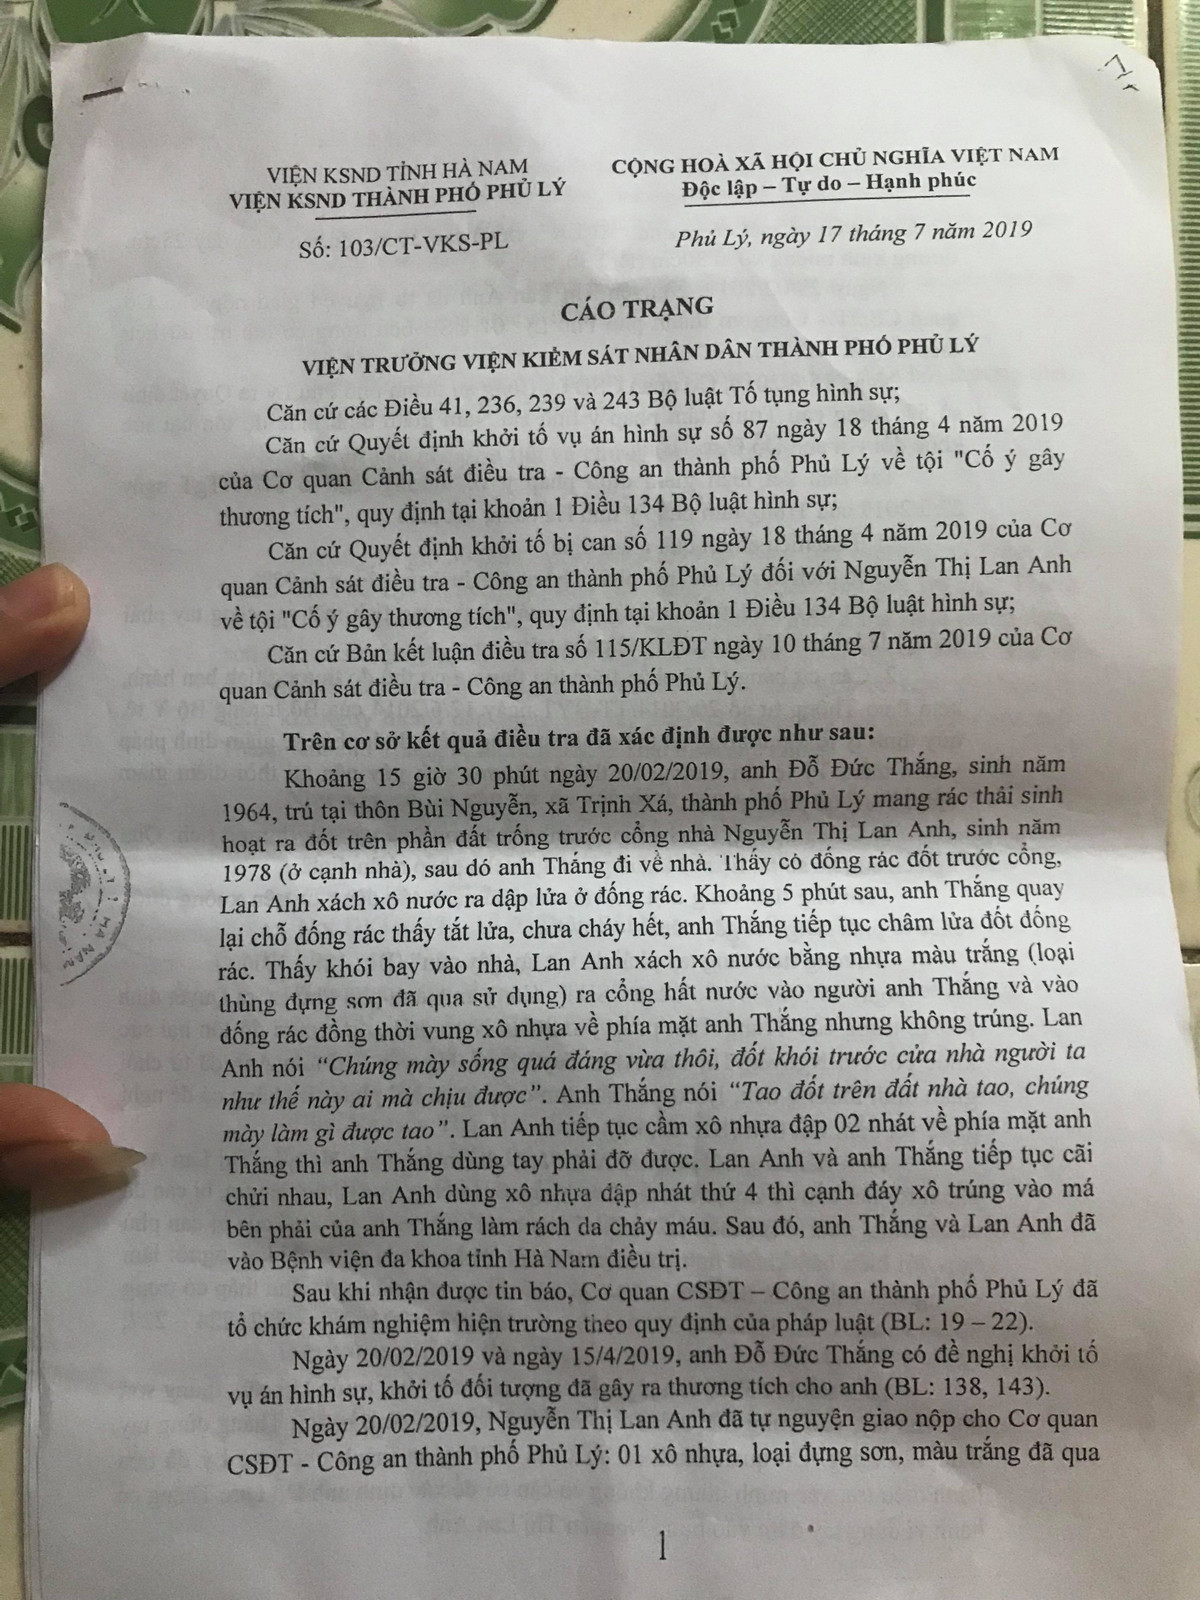 VIỆN KSND TỈNH HÀ NAM
VIỆN KSND THÀNH PHỐ PHỦ LÝ
Số: 103/CT-VKS-PL
CỘNG HOÀ XÃ HỘI CHỦ NGHĨA VIỆT NAM
Độc lập – Tự do – Hạnh phúc
Phủ Lý, ngày 17 tháng 7 năm 2019
CÁO TRẠNG
VIỆN TRƯỞNG VIỆN KIỂM SÁT NHÂN DÂN THÀNH PHỐ PHỦ LÝ
Căn cứ các Điều 41, 236, 239 và 243 Bộ luật Tố tụng hình sự;
Căn cứ Quyết định khởi tố vụ án hình sự số 87 ngày 18 tháng 4 năm 2019
của Cơ quan Cảnh sát điều tra - Công an thành phố Phủ Lý về tội "Cố ý gây
thương tích", quy định tại khoản 1 Điều 134 Bộ luật hình sự;
Căn cứ Quyết định khởi tố bị can số 119 ngày 18 tháng 4 năm 2019 của Cơ
quan Cảnh sát điều tra - Công an thành phố Phủ Lý đối với Nguyễn Thị Lan Anh
về tội "Cố ý gây thương tích", quy định tại khoản 1 Điều 134 Bộ luật hình sự;
Căn cứ Bản kết luận điều tra số 115/KLĐT ngày 10 tháng 7 năm 2019 của Cơ
quan Cảnh sát điều tra - Công an thành phố Phủ Lý.
Trên cơ sở kết quả điều tra đã xác định được như sau:
Khoảng 15 giờ 30 phút ngày 20/02/2019, anh Đỗ Đức Thắng, sinh năm
1964, trú tại thôn Bùi Nguyễn, xã Trịnh Xá, thành phố Phủ Lý mang rác thải sinh
hoạt ra đốt trên phần đất trống trước cổng nhà Nguyễn Thị Lan Anh, sinh năm
1978 (ở cạnh nhà), sau dó anh Thắng đi về nhà. Thấy có đống rác đốt trước cổng,
Lan Anh xách xô nước ra dập lửa ở đống rác. Khoảng 5 phút sau, anh Thắng quay
lại chỗ đống rác thấy tắt lửa, chưa cháy hết, anh Thắng tiếp tục châm lửa đốt đống
rác. Thấy khói bay vào nhà, Lan Anh xách xô nước bằng nhựa màu trắng (loại
thùng đựng sơn đã qua sử dụng) ra cổng hất nước vào người anh Thắng và vào
đống rác đồng thời vung xô nhựa về phía mặt anh Thắng nhưng không trúng. Lan
Anh nói “Chúng mày sống quá đáng vừa thôi, đốt khói trước cửa nhà người ta
như thế này ai mà chịu được”. Anh Thắng nói “Tao đốt trên đất nhà tao, chúng
mày làm gì được tao”. Lan Anh tiếp tục cầm xô nhựa đập 02 nhát về phía mặt anh
Thắng thì anh Thắng dùng tay phải đỡ được. Lan Anh và anh Thắng tiếp tục cãi
chửi nhau, Lan Anh dùng xô nhựa đập nhát thứ 4 thì cạnh đáy xô trúng vào má
bên phải của anh Thắng làm rách da chảy máu. Sau đó, anh Thắng và Lan Anh đã
vào Bệnh viện đa khoa tỉnh Hà Nam điều trị.
Sau khi nhận được tin báo, Cơ quan CSĐT – Công an thành phố Phủ Lý đã
tổ chức khám nghiệm hiện trường theo quy định của pháp luật (BL: 19 – 22).
Ngày 20/02/2019 và ngày 15/4/2019, anh Đỗ Đức Thắng có đề nghị khởi tố
vụ án hình sự, khởi tố đối tượng đã gây ra thương tích cho anh (BL: 138, 143).
Ngày 20/02/2019, Nguyễn Thị Lan Anh đã tự nguyện giao nộp cho Cơ quan
CSĐT - Công an thành phố Phủ Lý: 01 xô nhựa, loại đựng sơn, màu trắng đã qua
1